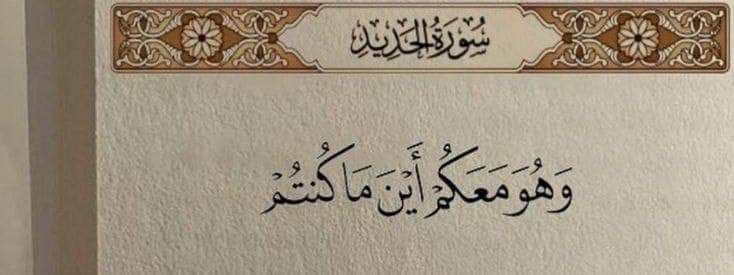 سُورَةُ الحَدِيدِ
وَهُوَ مَعَكُمْ أَيْنَ مَا كُنتُمْ